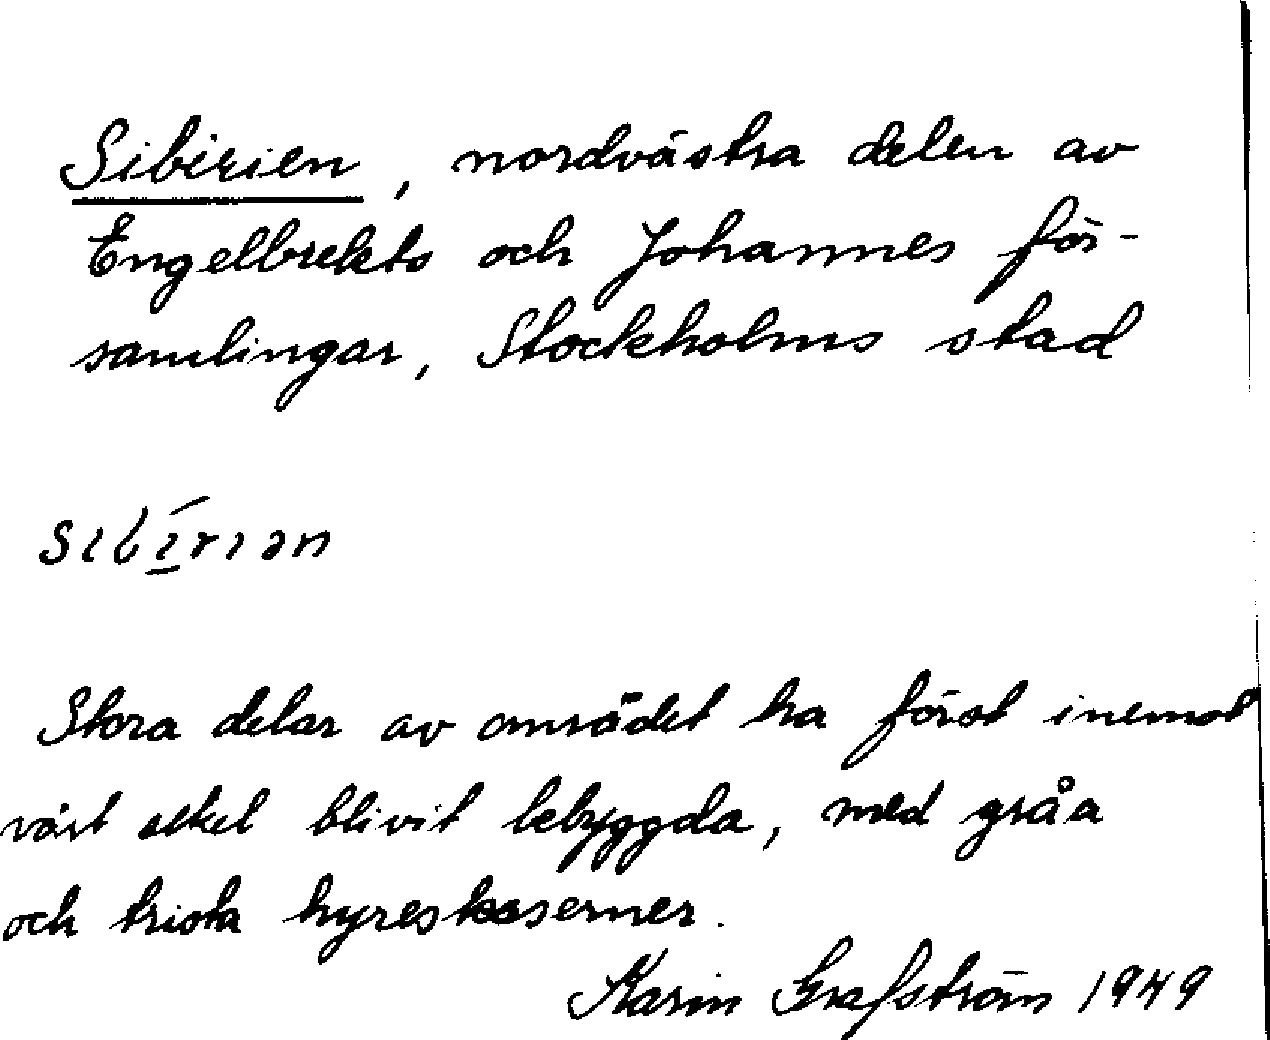 Sibirien, nordvästra delen av
Engelbrekts och Johannes för-
samlingar, Stockholms stad
sibí̱riən
Stora delar av området ha först inemot
vårt sekel blivit bebyggda, med gråa
och trista hyreskaserner.
Karin Grafström 1949